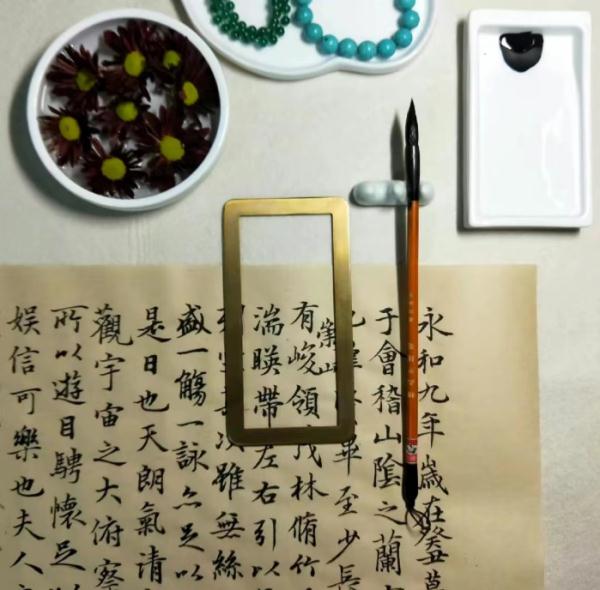 永和九年歲在癸丑暮
于會稽山陰之蘭
也羣畢至少長
有崇山峻領茂林脩竹
湍暎帶左右引以
列坐其次雖無絲
盛一觴一詠亦足以
是日也天朗氣清
觀宇宙之大俯察
所以遊目騁懷足以
娛信可樂也夫人